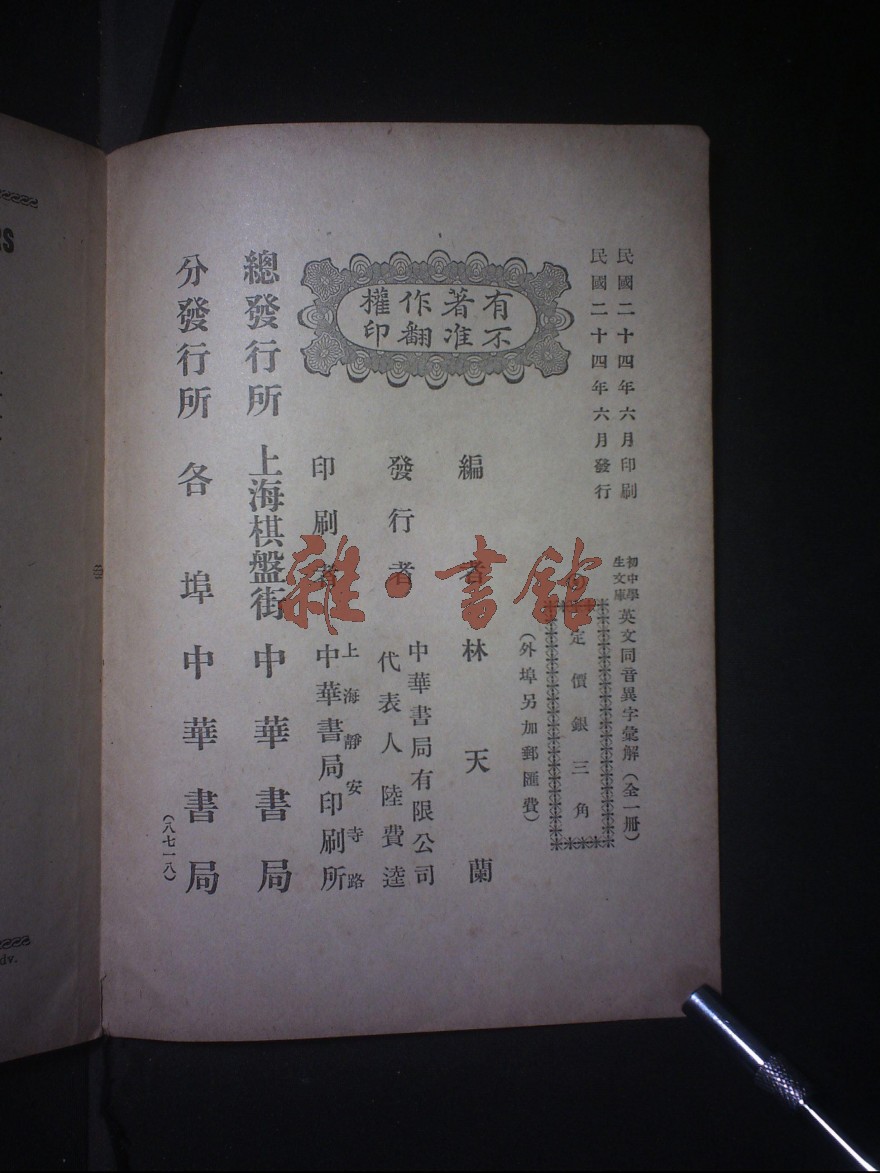 民國二十四年六月印刷
民國二十四年六月發行
初中學
生文庫
英文同音異字彙解（全一冊）
定價銀三角
（外埠另加郵匯費）
有著作權
不准翻印
編者 林天蘭
發行者 中華書局有限公司
代表人 陸費逵
印刷者 上海靜安寺路
中華書局印刷所
總發行所 上海棋盤街 中華書局
分發行所 各埠 中華書局
（八七一八）
雜·書館
dv.